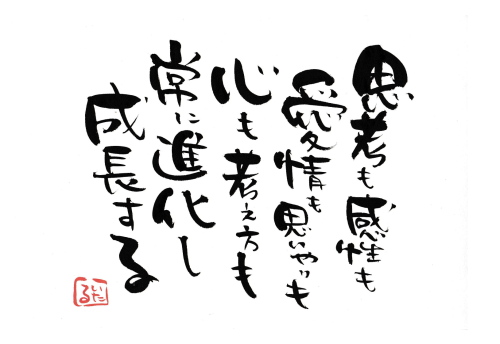 思考も感性も
愛情も思いやりも
心も考え方も
常に進化し
成長する